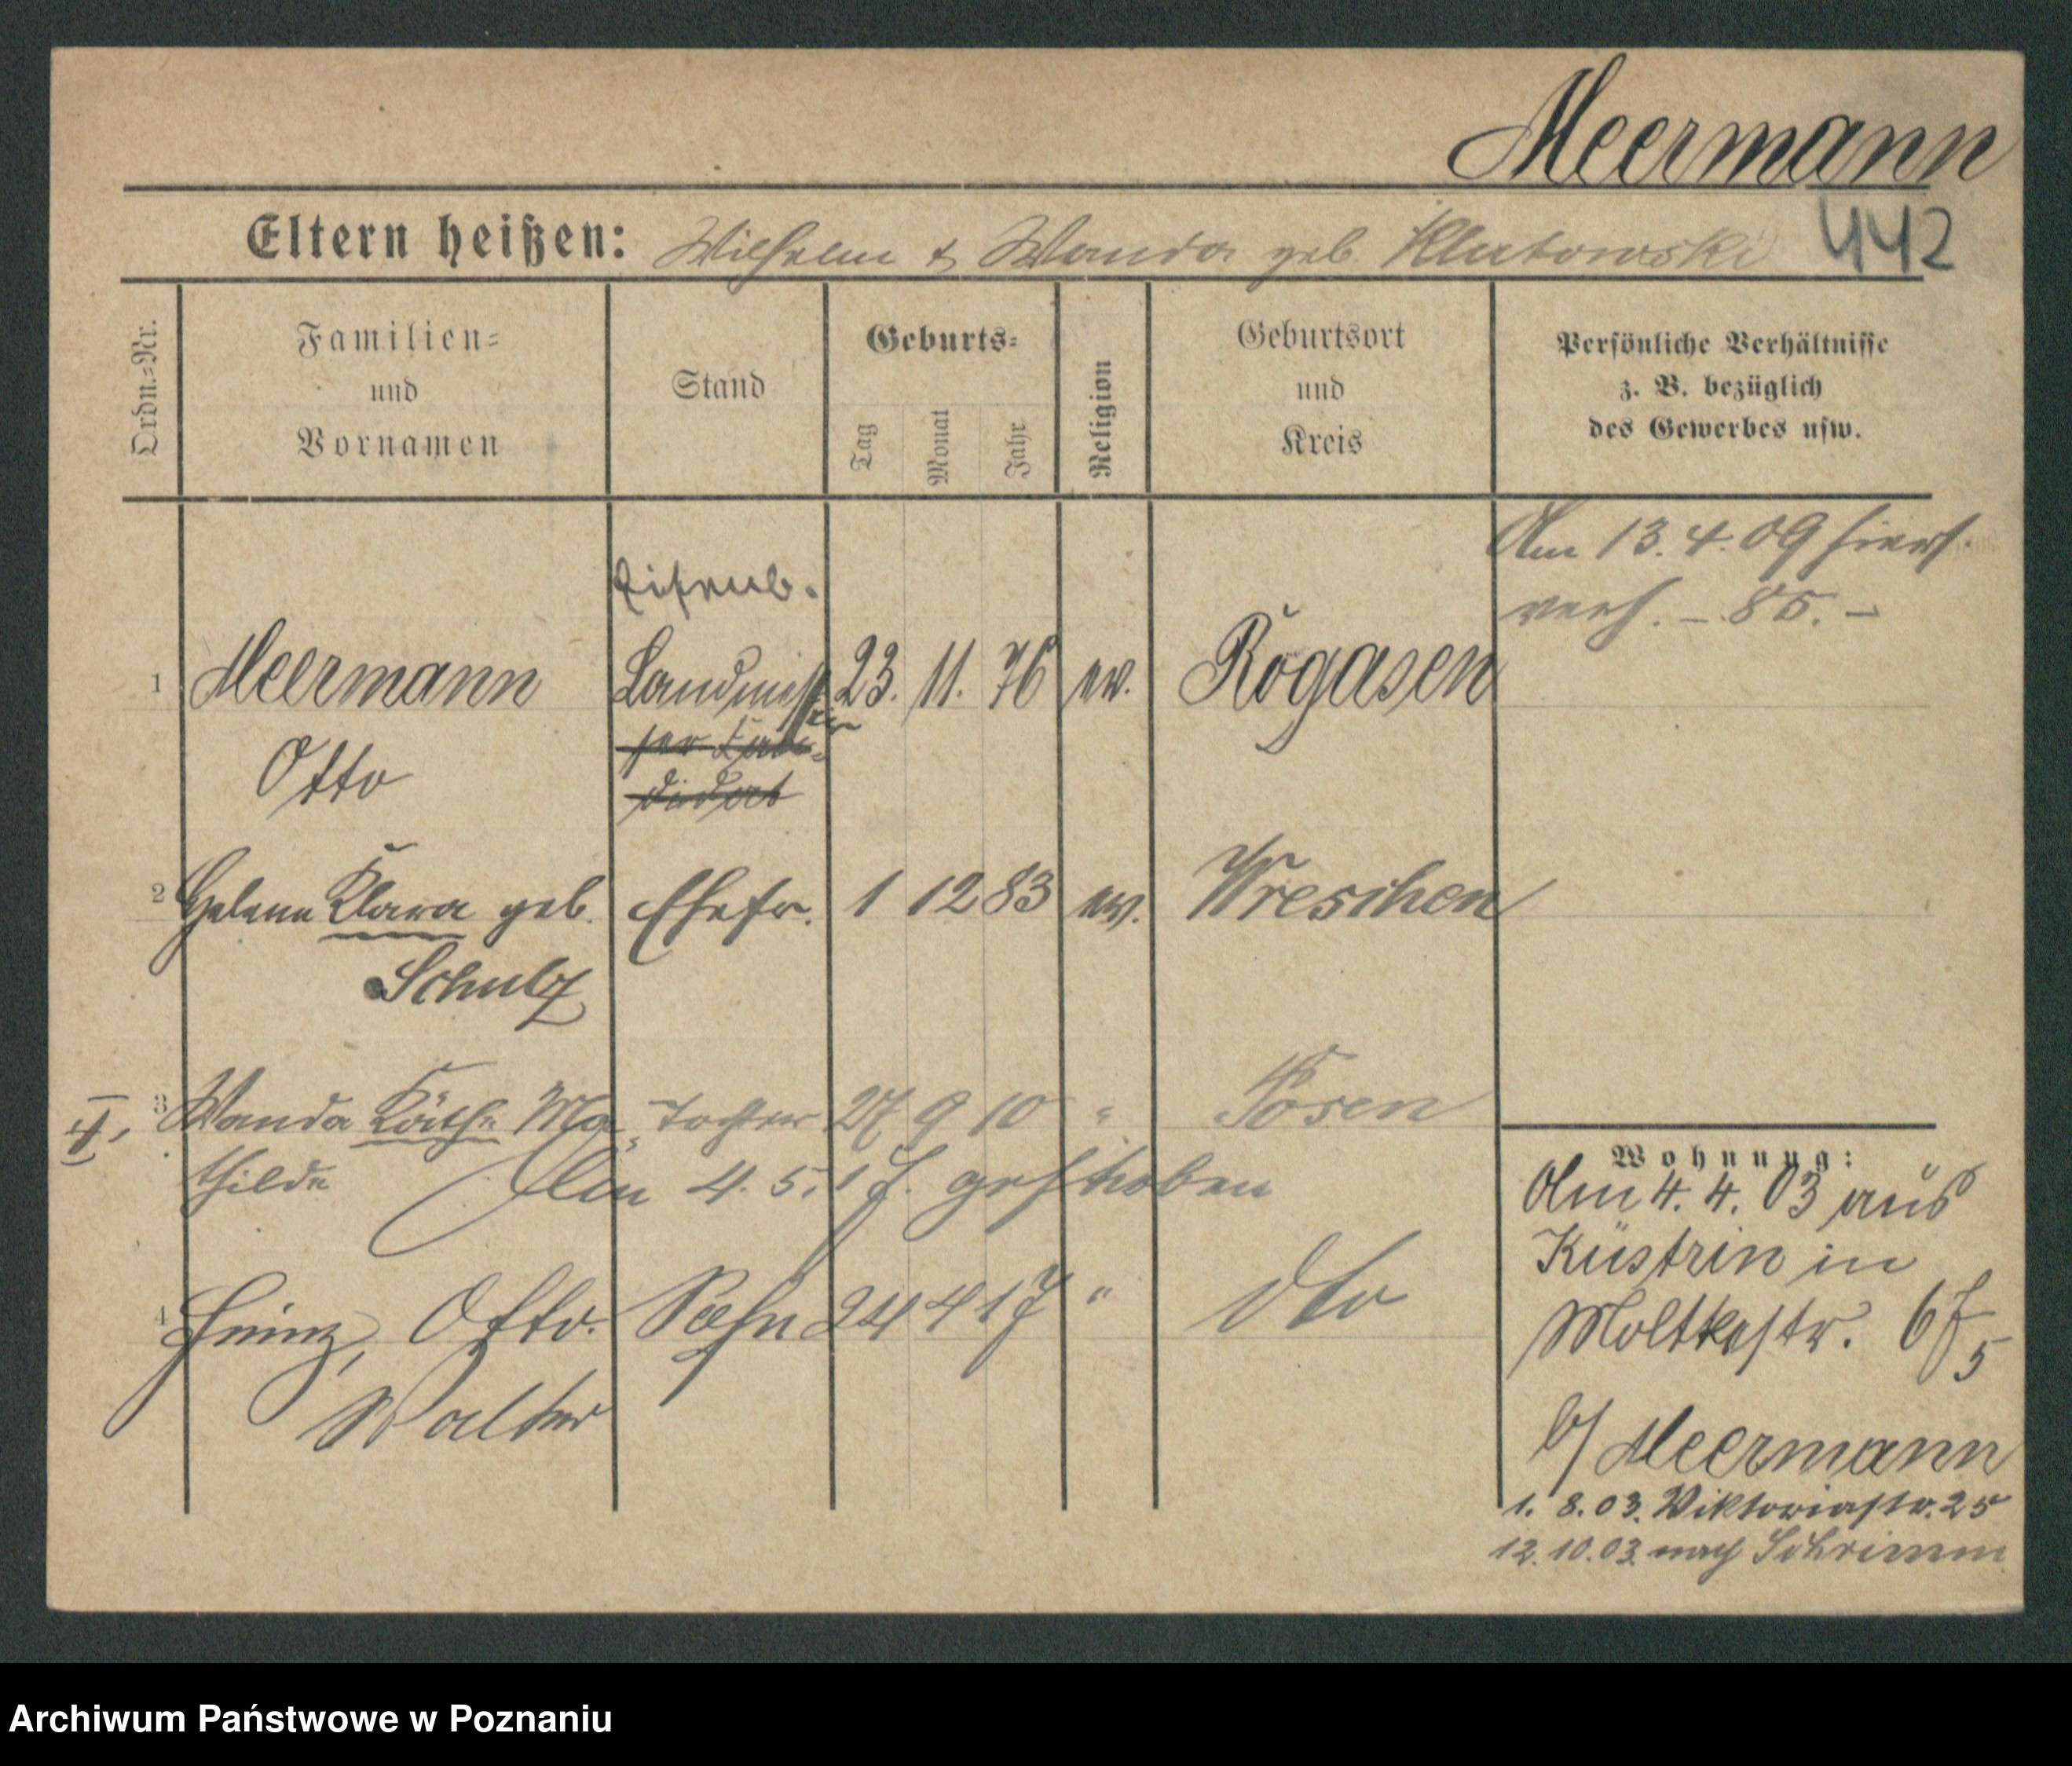 Meermann
Eltern heißen: Wilhelm & Wanda geb. Klutowski
442
Ordn.=Nr.
Familien=
und
Vornamen
Stand
Geburts=
Tag
Monat
Jahr
Religion
Geburtsort
und
Kreis
Persönliche Verhältnisse
z. B. bezüglich
des Gewerbes usw.
Am 13. 4. 09 hiers.
verh. – 85. –
Eisenb.
1 Meermann Landmess 23. 11. 76 ev. Rogasen
Otto
ser Kan=
didat
2 Helene Klara geb. Ehefr. 1 12 83 ev. Wreschen
Schulz
3 Wanda Käthe Ma Tochter 27 9 10 " Posen
thilde Am 4. 5. 17 geschoben
4 Heinz, Otto Sohn 24 4 17 " dto
Walter
Wohnung:
Am 4. 4. 03 aus
Küstrin in
Moltkestr. 6
b/ Meermann
1. 8. 03. Viktoriastr. 25
12. 10. 03. nach Schrimm
Archiwum Państwowe w Poznaniu